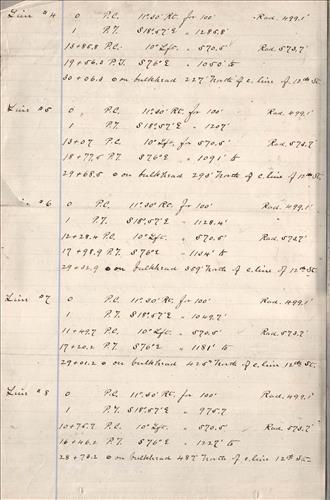 Line #4 0 P.C. 11°30' Rt. for 100' Rad. 499.1'
1 P.T. S18°57'E " 1285.8'
13+85.8 P.C. 10° Lft. " 570.5' Rad. 573.7'
19+56.3 P.T. S76°E " 1050' to
30+06.3 0 on bulkhead 227' North of c. line of 12th St.
Line #5 0 P.C. 11°30' Rt. for 100' Rad. 499.1'
1 P.T. S18°57'E " 1207'
13+07 P.C. 10° Lft. for 570.5' Rad. 573.7'
18+77.5 P.T. S76°E " 1091' to
29+68.5 0 on bulkhead 293' North of c. line of 12th St.
Line #6 0 P.C. 11°30' Rt. for 100' Rad. 499.1'
1 P.T. S18°57'E " 1128.4'
12+28.4 P.C. 10° Lft. " 570.5' Rad. 573.7'
17+98.9 P.T. S76°E " 1134' to
29+32.9 0 on bulkhead 359' North of c. line of 12th St.
Line #7 0 P.C. 11°30' Rt. for 100' Rad. 499.1'
1 P.T. S18°57'E " 1049.7'
11+49.7 P.C. 10° Lft. " 570.5' Rad. 573.7'
17+20.2 P.T. S76°E " 1181' to
29+01.2 0 on bulkhead 425' North of c. line 12th St.
Line #8 0 P.C. 11°30' Rt. for 100' Rad. 499.1'
1 P.T. S18°57'E " 975.7
10+75.7 P.C. 10° Lft. " 570.5' Rad. 573.7'
16+46.2 P.T. S76°E " 1227' to
28+73.2 0 on bulkhead 487' North of c. line 12th St.